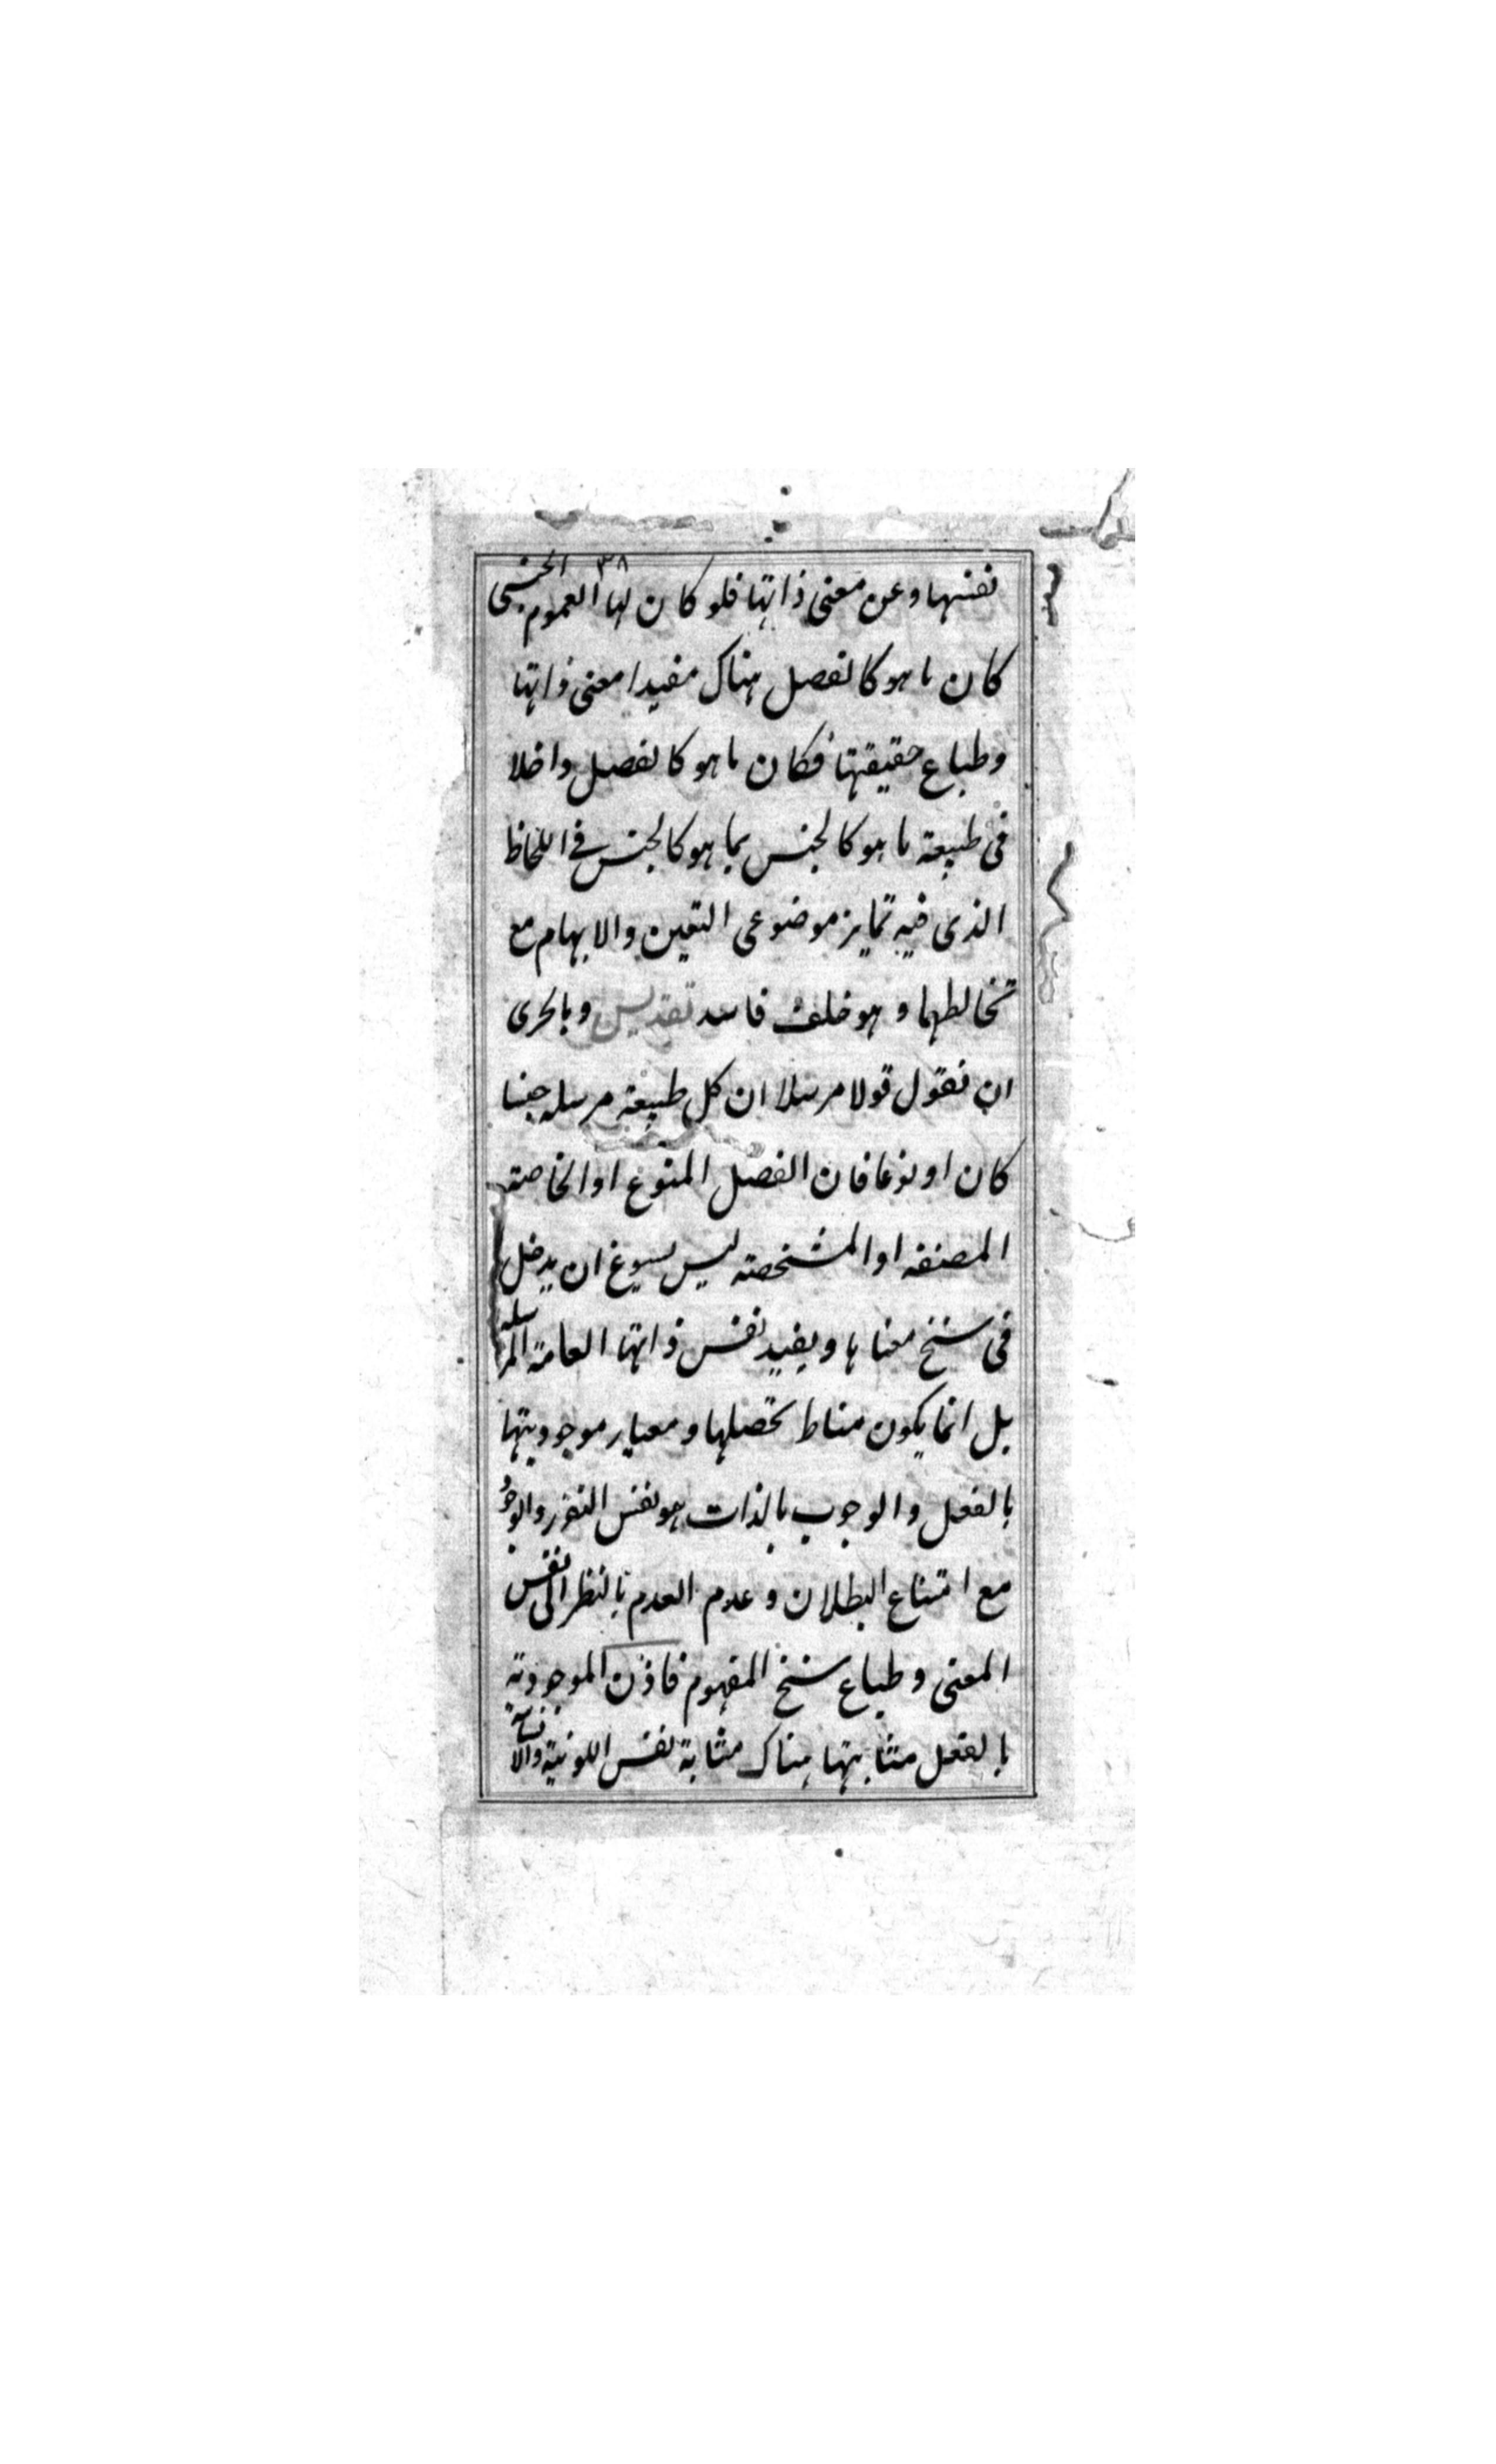 ٣٨
نفسها وعن معنى ذاتها فلو كان لها العموم الجنسى
كان ما هو كالفصل هناك مفيدا معنى ذاتها
وطباع حقيقتها فكان ما هو كالفصل داخلا
فى طبيعة ما هو كالجنس بما هو كالجنس فى اللحاظ
الذى فيه تمايز موضوعى التعين والابهام مع
تخالطهما وهو خلف فاسد تقديس وبالحرى
ان نقول قولا مرسلا ان كل طبيعة مرسله جنسا
كان او نوعا فان الفصل المنوع او الخاصة
المصنفه او المشخصته ليس يسوغ ان يدخل
فى سنخ معناها ويفيد نفس ذاتها العامة المرسله
بل انما يكون مناط تحصلها ومعيار موجوديتها
بالفعل والوجوب بالذات هو نفس التقرر والوجود
مع امتناع البطلان وعدم العدم بالنظر الى نفس
المعنى وطباع سنخ المفهوم فاذن الموجودية
بالفعل مثابتها هناك مثابة نفس اللونية والانسانية